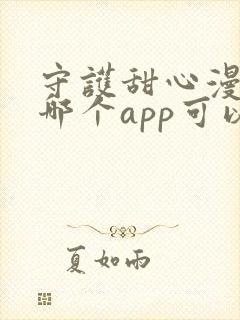 守護甜心漫
哪个app可以
夏如雨